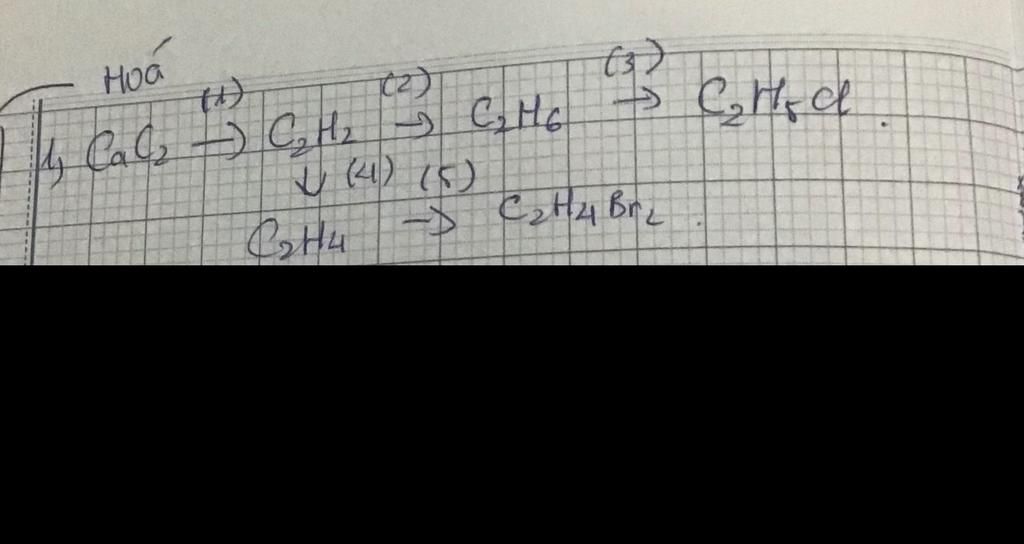 Hoá
1, CaC2 (1)→ C2H2 (2)→ C2H6 (3)→ C2H5Cl.
↓ (4) (5)
C2H4 → C2H4Br2.